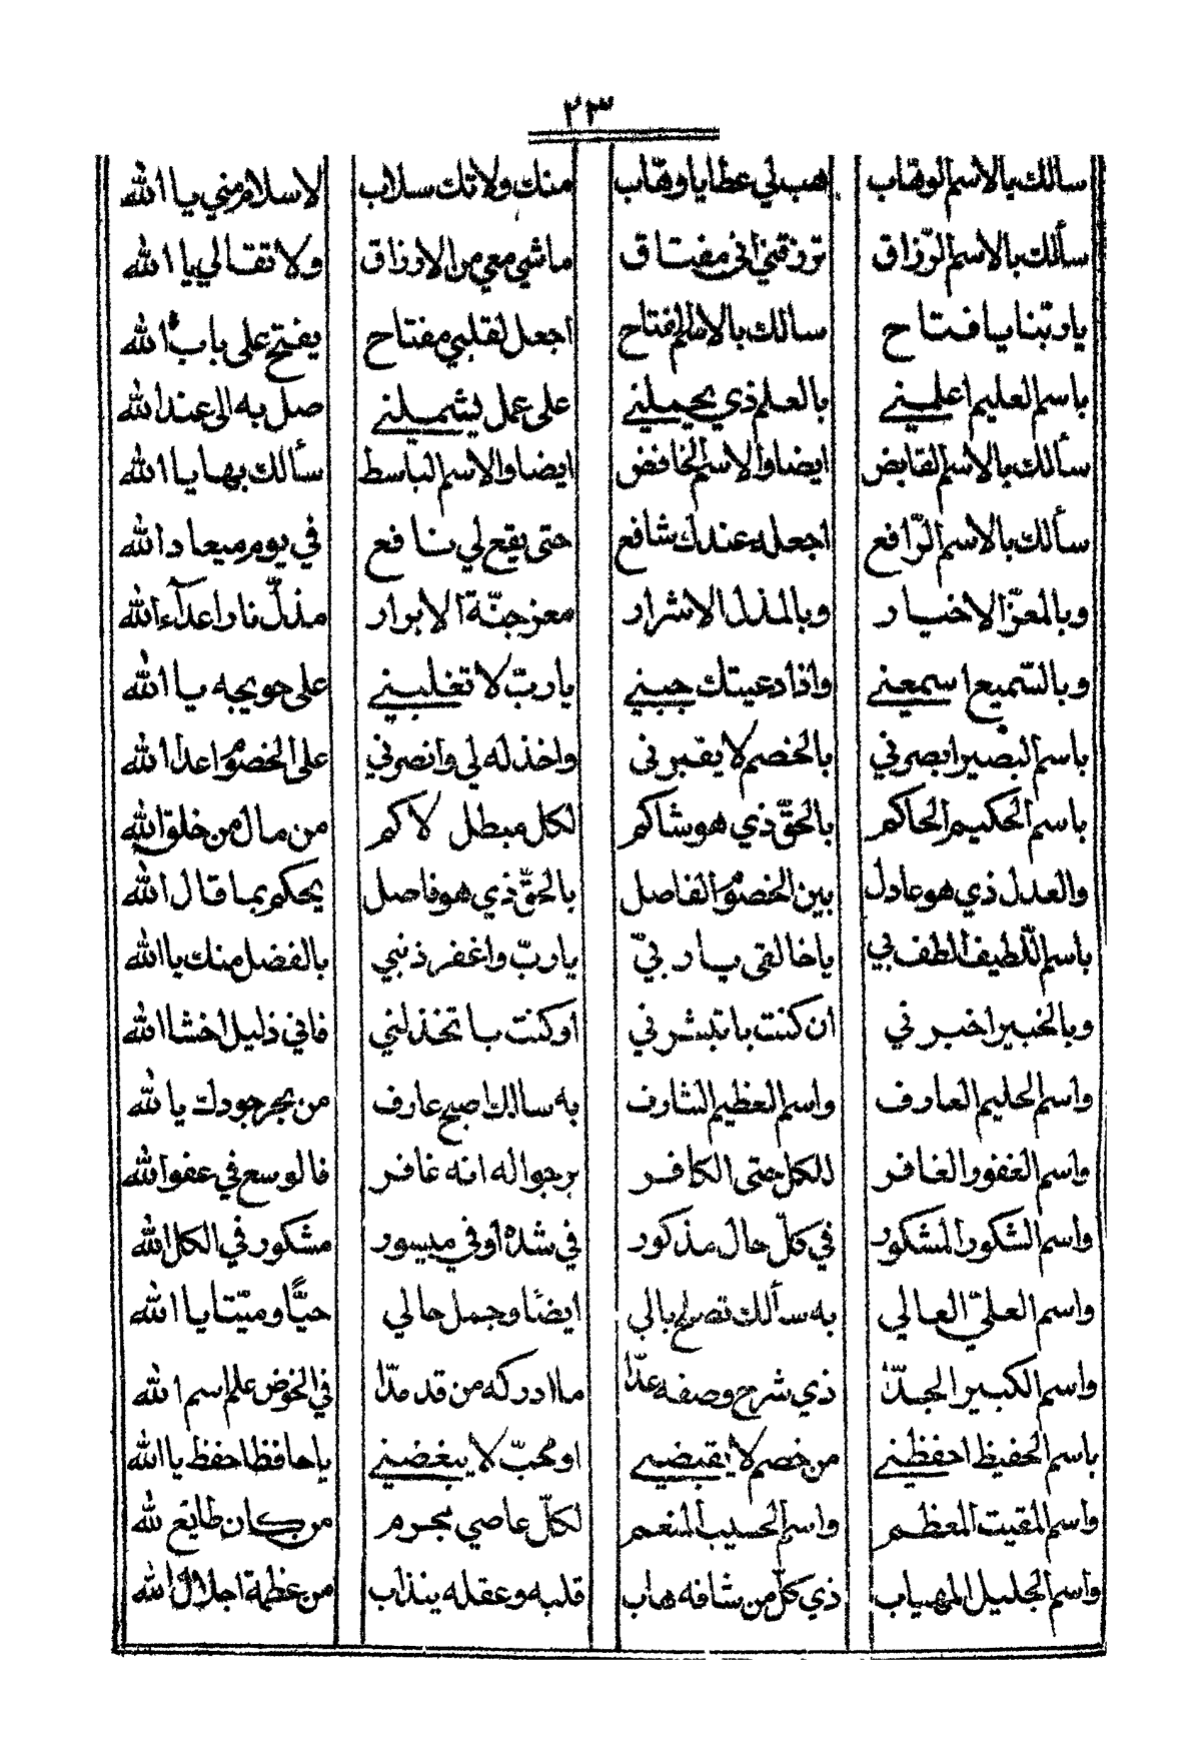 ٢٣
سالك بالاسم الوهاب هب لي عطايا وهاب منك ولا تك سلاب لاسلام مني يا الله
سألك بالاسم الرزاق ترزقني اني مفتاق ماشي معي من الارزاق ولا تقالي يا الله
يا ربنا يا فتاح سالك بالاسم الفتاح اجعل لقلبي مفتاح يفتح على باب الله
باسم العليم اعلمني بالعلم ذي يحملني على عمل يشملني صل به الى عند الله
سألك بالاسم القابض ايضا والاسم الخافض ايضا والاسم الباسط سألك بها يا الله
سألك بالاسم الرّافع اجعله عندك شافع حتى يقع لي نافع في يوم ميعاد الله
وبالمعزّ الاخيار وبالمذل الاشرار معز جنّة الابرار مذلّ نار اعدآء الله
وبالسّميع اسمعني واذا دعيتك جبني يا ربّ لا تغلبني على حويجه يا الله
باسم البصير ابصرني بالخصم لا يقبرني واخذ له لي وانصرني على الخصوم اعدا الله
باسم الحكيم الحاكم بالحقّ ذي هو شاكم لكل مبطل لاكم من مال من خلق الله
والعدل ذي هو عادل بين الخصوم الفاصل بالحقّ ذي هو فاصل يحكم بما قال الله
باسم اللّطيف الطف بي يا خالقي يا ربيّ يا ربّ واغفر ذنبي بالفضل منك يا الله
وبالخبير اخبرني ان كنت باتبشرني او كنت با تخذلني فاني ذليل اخشا الله
واسم الحليم العارف واسم العظيم الشارف به سالك اصبح عارف من بحر جودك يا لله
واسم الغفور الغافر للكل حتى الكافر يرجوا له انه غافر فالوسع في عفو الله
واسم الشكور المشكور في كلّ حال مذكور في شده أو في ميسور مشكور في الكل الله
واسم العليّ العالي به سألك تصلح بالي ايضًا وجمل حالي حيًّا وميّتا يا الله
واسم الكبير الجدّا ذي شرح وصفه عدّا ما ادركه من قد مدّا في الخوض علم اسم الله
باسم الحفيظ احفظني من خصم لا يقبضني او محبّ لا يبغضني يا حافظ احفظ يا الله
واسم المقيت المعظم واسم الحسيب المنعم لكلّ عاصي مجرم من كان طايع لله
واسم الجليل المهياب ذي كلّ من شافه هاب قلبه وعقله ينذاب من عظمة اجلال الله